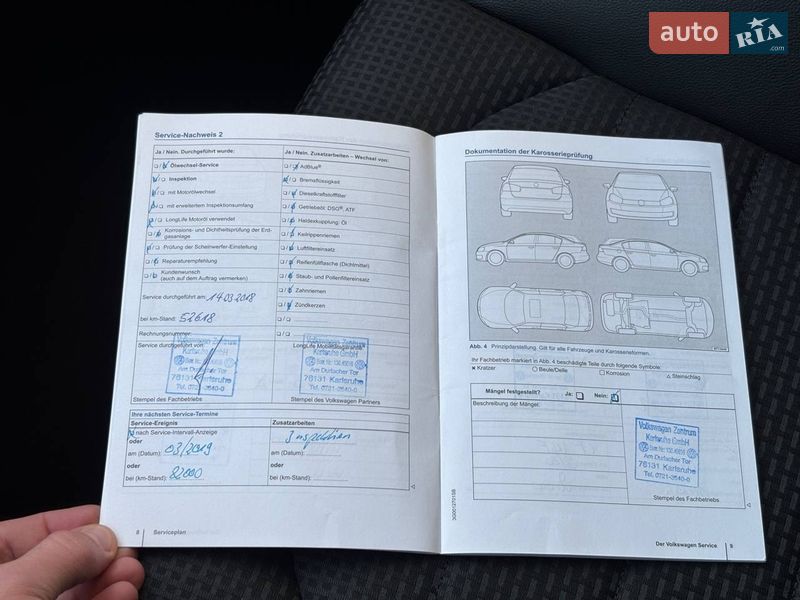 auto RIA .com
Service-Nachweis 2
Ja / Nein. Durchgeführt wurde:
Ölwechsel-Service
Inspektion
mit Motorölwechsel
mit erweitertem Inspektionsumfang
LongLife Motoröl verwendet
Korrosions- und Dichtheitsprüfung der Erd-
gasanlage
Prüfung der Scheinwerfer-Einstellung
Reparaturempfehlung
Kundenwunsch
(auch auf dem Auftrag vermerken)
Service durchgeführt am: 14.03.2018
bei km-Stand: 52618
Rechnungsnummer:
Service durchgeführt von:
Volkswagen Zentrum
Karlsruhe GmbH
Am Durlacher Tor
76131 Karlsruhe
Tel. 0721-3540-0
Stempel des Fachbetriebs
Ja / Nein. Zusatzarbeiten – Wechsel von:
AdBlue®
Bremsflüssigkeit
Dieselkraftstofffilter
Getriebeöl: DSG®, ATF
Haldexkupplung: Öl
Keilrippenriemen
Luftfiltereinsatz
Reifenfüllflasche (Dichtmittel)
Staub- und Pollenfiltereinsatz
Zahnriemen
Zündkerzen
LongLife Mobilitätsgarantie
Volkswagen Zentrum
Karlsruhe GmbH
Am Durlacher Tor
76131 Karlsruhe
Tel. 0721-3540-0
Stempel des Volkswagen Partners
Ihre nächsten Service-Termine
Service-Ereignis
nach Service-Intervall-Anzeige
oder
am (Datum): 03/2019
oder
bei (km-Stand): 82000
Zusatzarbeiten
Inspektion
am (Datum):
oder
bei (km-Stand):
8 Serviceplan
Dokumentation der Karosserieprüfung
Abb. 4 Prinzipdarstellung. Gilt für alle Fahrzeuge und Karosserieformen.
Ihr Fachbetrieb markiert in Abb. 4 beschädigte Teile durch folgende Symbole:
× Kratzer
○ Beule/Delle
□ Korrosion
△ Steinschlag
Mängel festgestellt? Ja: Nein:
Beschreibung der Mängel:
Volkswagen Zentrum
Karlsruhe GmbH
Am Durlacher Tor
76131 Karlsruhe
Tel. 0721-3540-0
Stempel des Fachbetriebs
Der Volkswagen Service 9